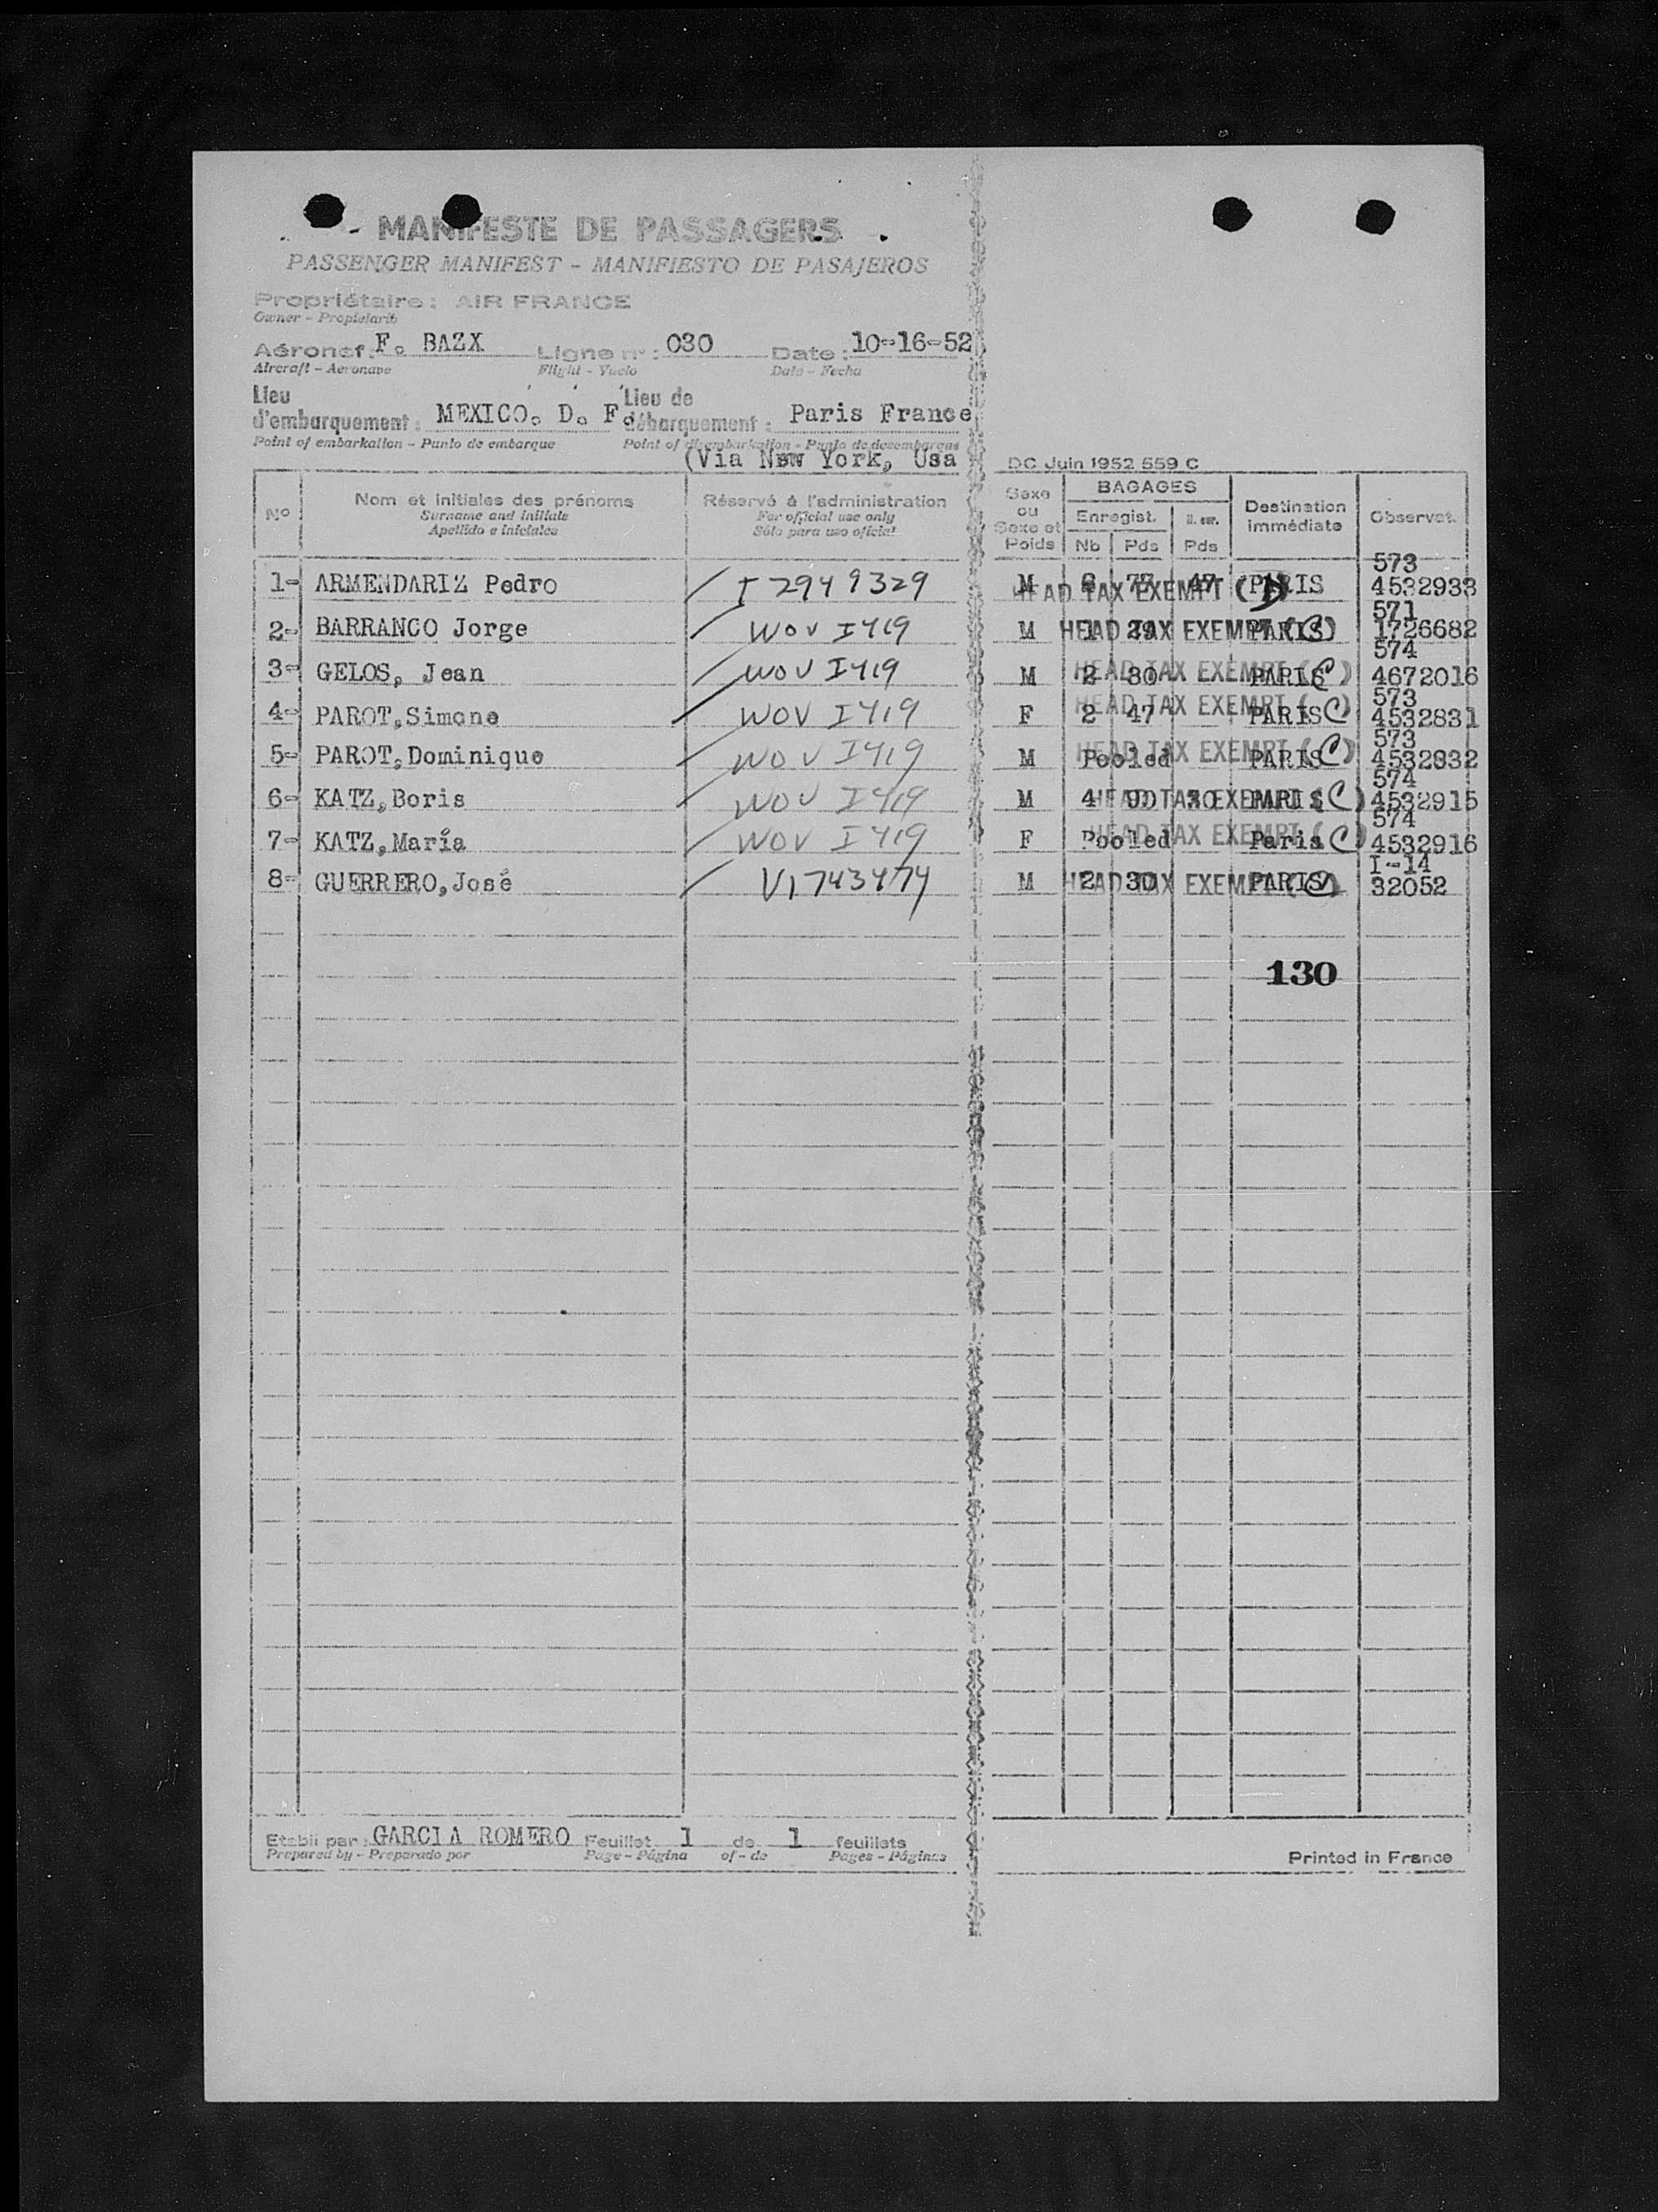 MANIFESTE DE PASSAGERS
PASSENGER MANIFEST - MANIFIESTO DE PASAJEROS
Propriétaire : AIR FRANCE
Owner - Propietario
Aéronef : F. BAZX Ligne n° : 030 Date : 10-16-52
Aircraft - Aeronave Flight - Vuelo Date - Fecha
Lieu d'embarquement : MEXICO. D. F. Lieu de débarquement : Paris France
Point of embarkation - Punto de embarque Point of disembarkation - Punto de desembarque
(Via New York, Usa
DC Juin 1952 559 C
Nº Nom et initiales des prénoms Réservé à l'administration Sexe ou Sexe et Poids BAGAGES Destination immédiate Observat.
Surname and initials For official use only Enregist.
Apellido e iniciales Sólo para uso oficial Nb Pds Pds
573
1- ARMENDARIZ Pedro I 2949329 M 77 47 PARIS 4532933
HEAD TAX EXEMPT
571
2- BARRANCO Jorge WOV I419 M 1 29 PARIS 1726682
HEAD TAX EXEMPT (C)
574
3- GELOS, Jean WOV I419 M 2 30 PARIS 4672016
HEAD TAX EXEMPT (C)
573
4- PAROT,Simone WOV I419 F 2 47 PARIS 4532831
HEAD TAX EXEMPT (C)
573
5- PAROT,Dominique WOV I419 M Pooled PARIS 4532832
HEAD TAX EXEMPT (C)
574
6- KATZ,Boris WOV I419 M 4 90 30 PARIS 4532915
HEAD TAX EXEMPT (C)
574
7- KATZ,María WOV I419 F Pooled Paris 4532916
HEAD TAX EXEMPT (C)
I-14
8- GUERRERO,José V1743474 M 2 30 PARIS 32052
HEAD TAX EXEMPT (C)
130
Etabli par : GARCIA ROMERO Feuillet 1 de 1 feuillets
Prepared by - Preparado por Page - Página of - de Pages - Páginas
Printed in France